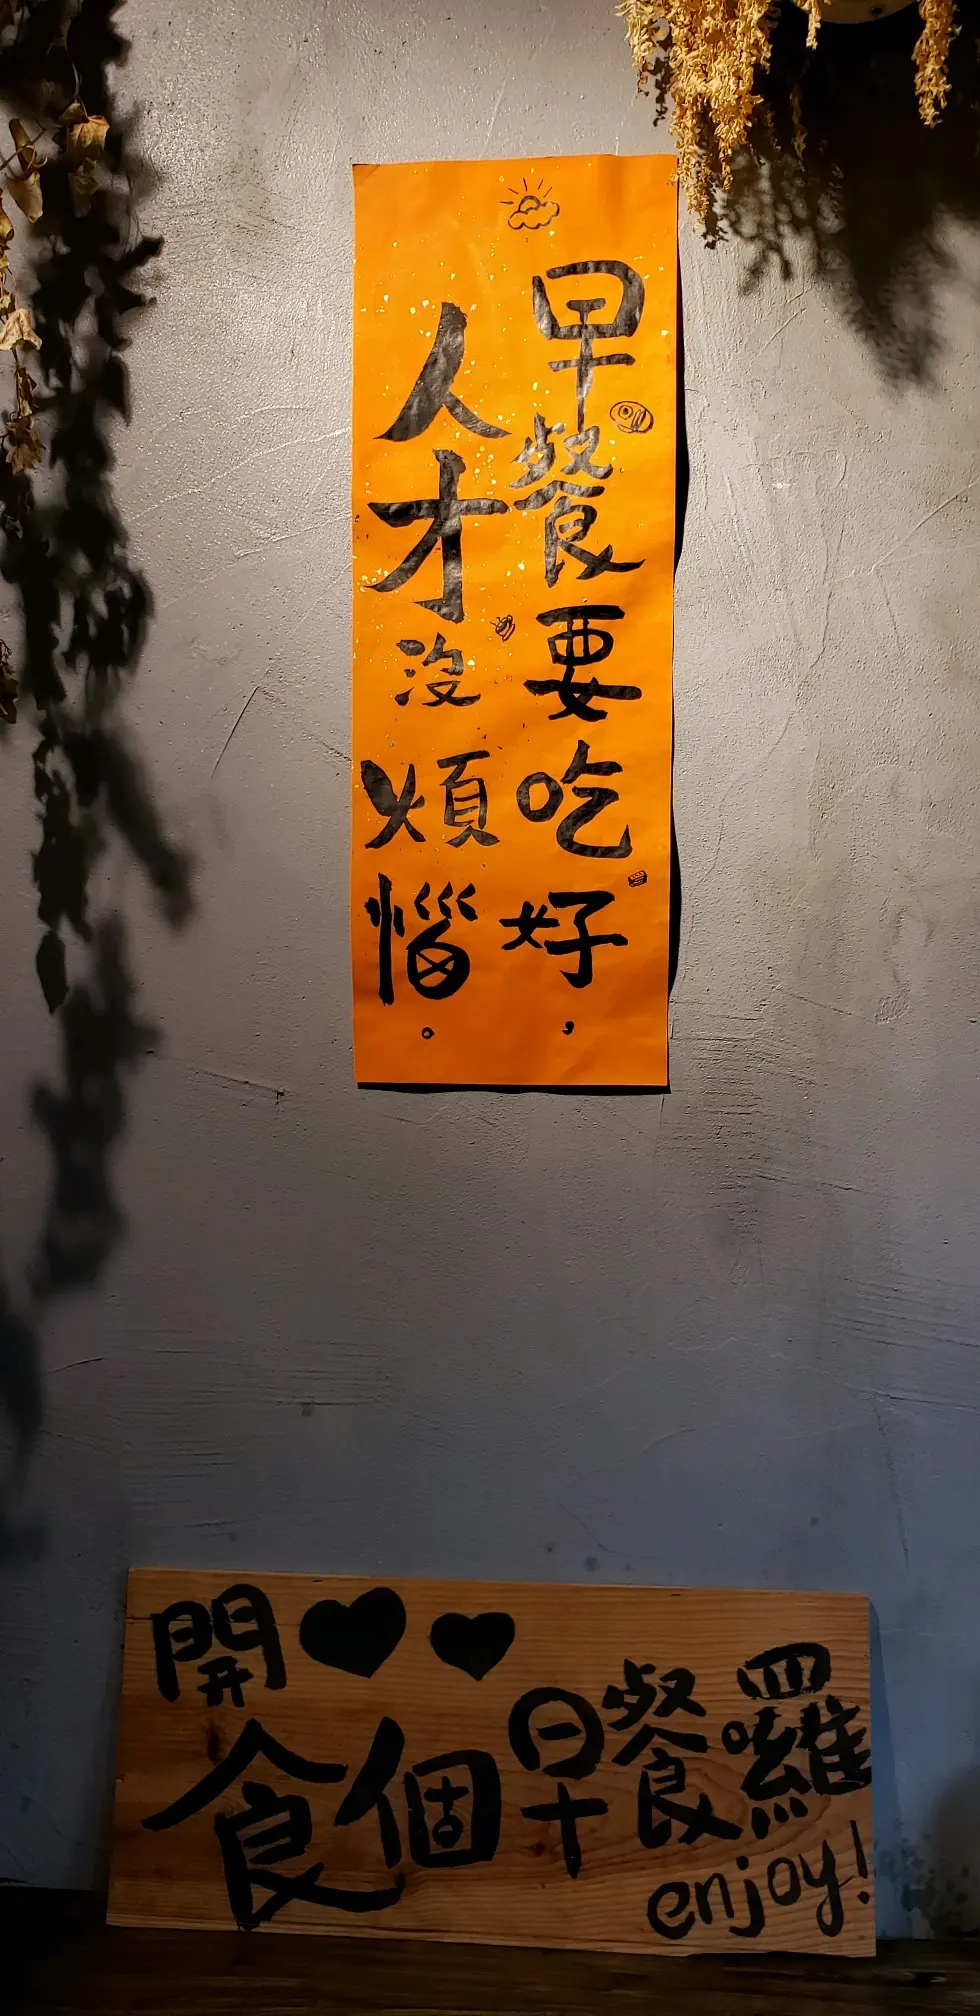 早餐要吃好，
人才沒煩惱。
開♥♥
食個早餐囉
enjoy!